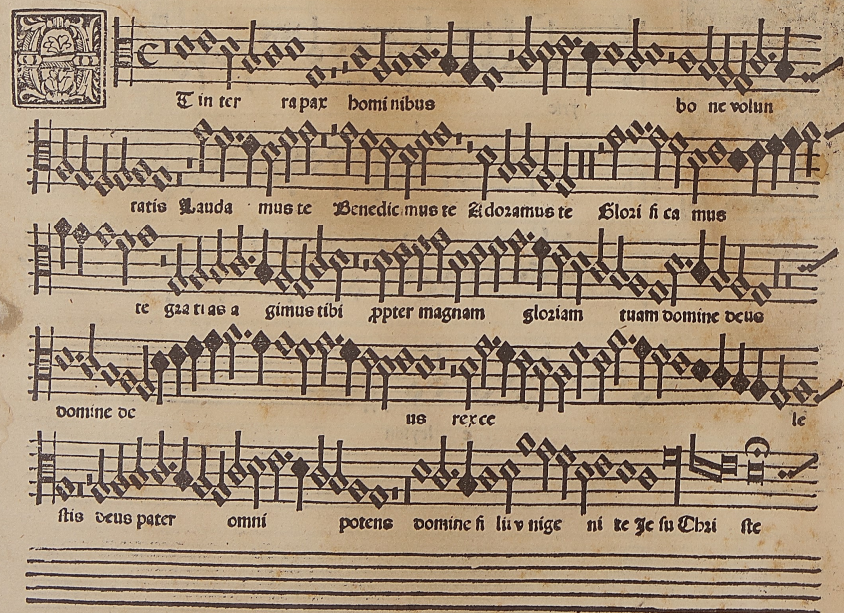 Et in ter ra pax homi nibus bo ne volun
tatis Lauda mus te Benedic mus te Adoramus te Glori fi ca mus
te gra ti as a gimus tibi ppter magnam gloriam tuam domine deus
domine de us rex ce le
stis deus pater omni potens domine fi li v nige ni te Je su Chri ste